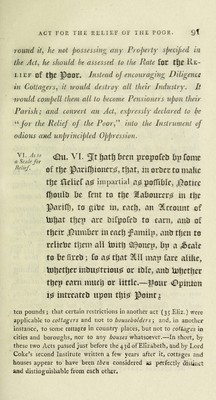 ACT FOR THE RELIEF OF THE POOR. 91
round it, he not possessing any Property specified in
the Act, he should be assessed to the Rate for the Re-
lief of the Poor. Instead of encouraging Diligence
in Cottagers, it would destroy all their Industry. It
would compell them all to become Pensioners upon their
Parish; and convert an Act, expressly declared to be
"for the Relief of the Poor," into the Instrument of
odious and unprincipled Oppression.
VI. As to a Scale for Relief.
Qu. VI. It hath been proposed by some
of the Parishioners, that, in order to make
the Relief as impartial as possible, Notice
should be sent to the Labourers in the
Parish, to give in, each, an Account of
what they are disposed to earn, and of
their Number in each Family, and then to
relieve them all with Money, by a Scale
to be fixed; so as that All may fare alike,
whether industrious or idle, and whether
they earn much or little.—Your Opinion
is intreated upon this Point?
ten pounds; that certain restrictions in another act (35 Eliz.) were
applicable to cottagers and not to householders; and, in another
instance, to some cottages in country places, but not to cottages in
cities and boroughs, nor to any houses whatsoever.—In short, by
these two Acts passed just before the 43d of Elizabeth, and by Lord
Coke's second Institute written a few years after it, cottages and
houses appear to have been then considered as perfectly distinct
and distinguishable from each other.